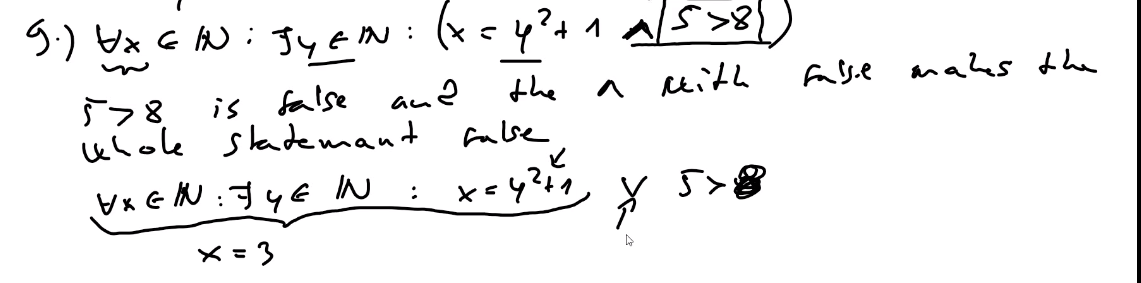 g.) ∀x ∈ ℕ : ∃y ∈ ℕ : (x = y²+1 ∧ 5>8)
5>8 is false and the ∧ with false makes the
whole statemant false
∀x ∈ ℕ : ∃y ∈ ℕ : x = y²+1, ∨ 5>8
x = 3